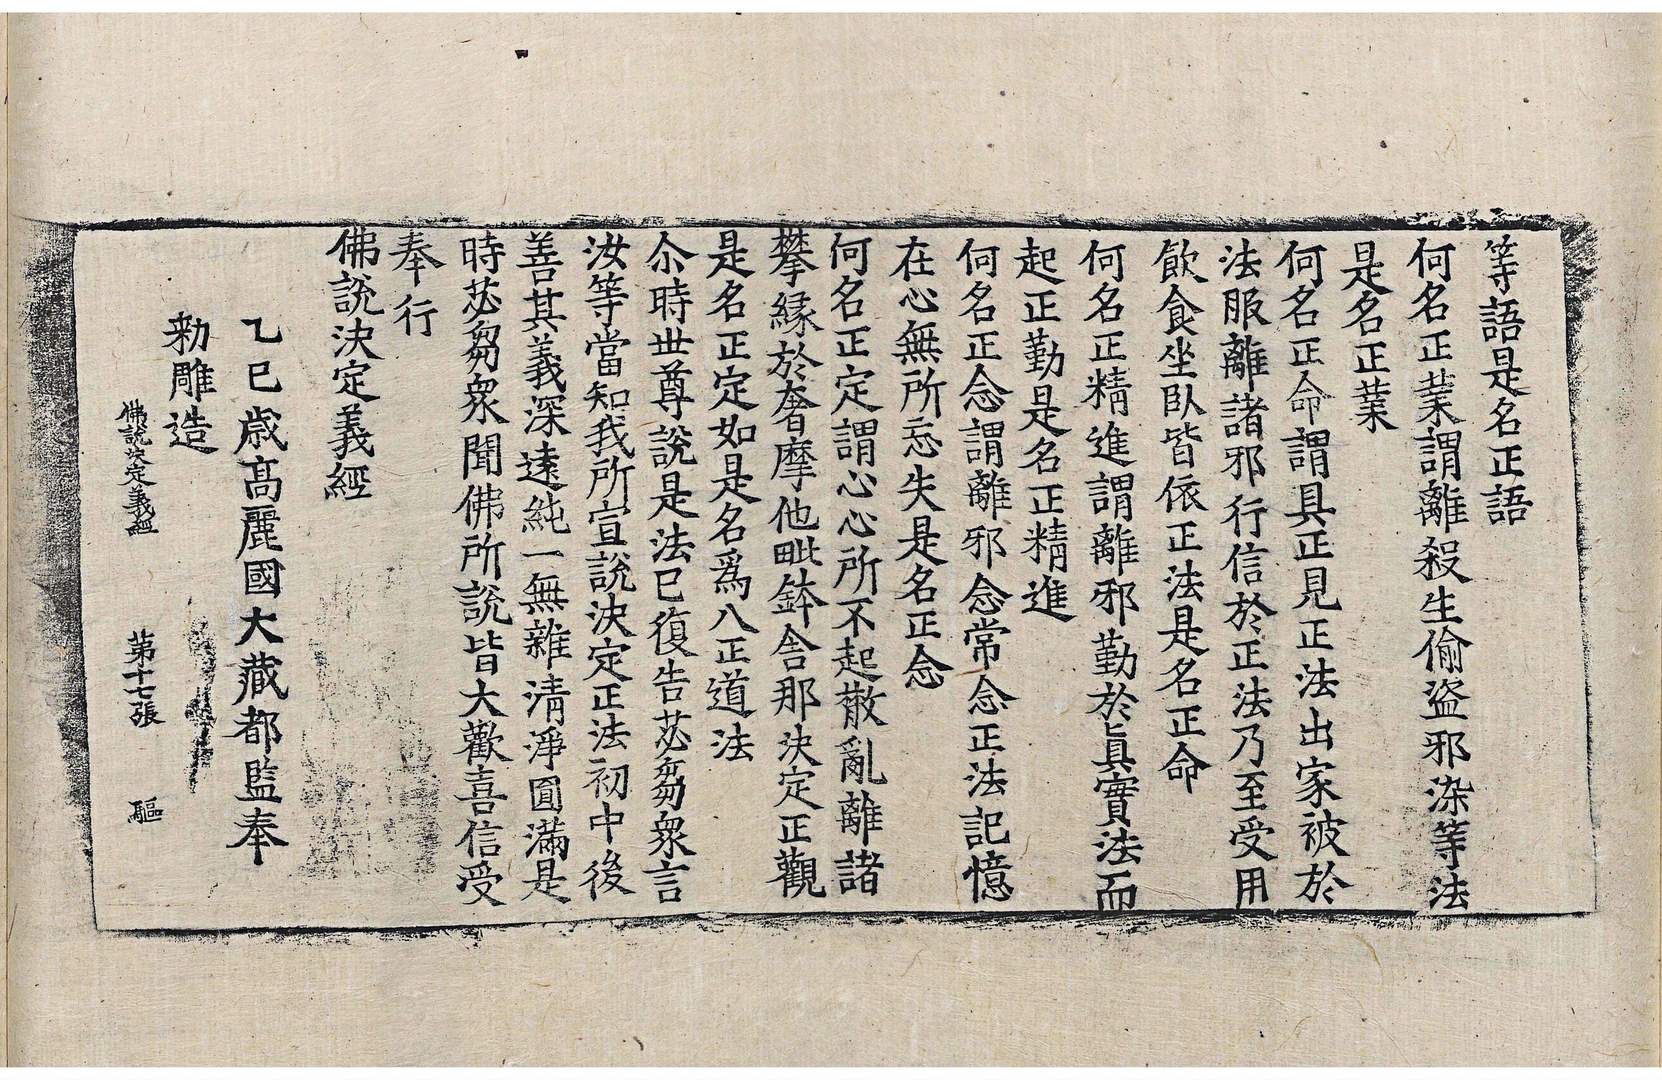 等語是名正語
何名正業謂離殺生偷盜邪染等法
是名正業
何名正命謂具正見正法出家被於
法服離諸邪行信於正法乃至受用
飲食坐臥皆依正法是名正命
何名正精進謂離邪勤於眞實法而
起正勤是名正精進
何名正念謂離邪念常念正法記憶
在心無所忘失是名正念
何名正定謂心心所不起散亂離諸
攀緣於奢摩他毗鉢舍那決定正觀
是名正定如是名爲八正道法
尒時世尊說是法已復告苾芻衆言
汝等當知我所宣說決定正法初中後
善其義深遠純一無雜淸淨圓滿是
時苾芻衆聞佛所說皆大歡喜信受
奉行
佛說決定義經
乙巳歲高麗國大藏都監奉
勑雕造
佛說決定義經 第十七張 驅